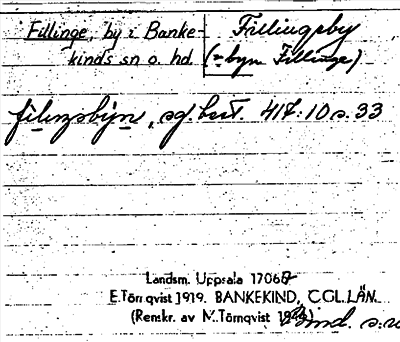 Fillinge, by i Banke-
kinds sn o. hd.
Fillingsby
(= byn Fillinge)
filinzsbýn, sg. best. 417:10 s. 33
Landsm. Uppsala 1706
E.Törnqvist 1919. BANKEKIND, ÖGL. LÄN
(Renskr. av M.Törnqvist